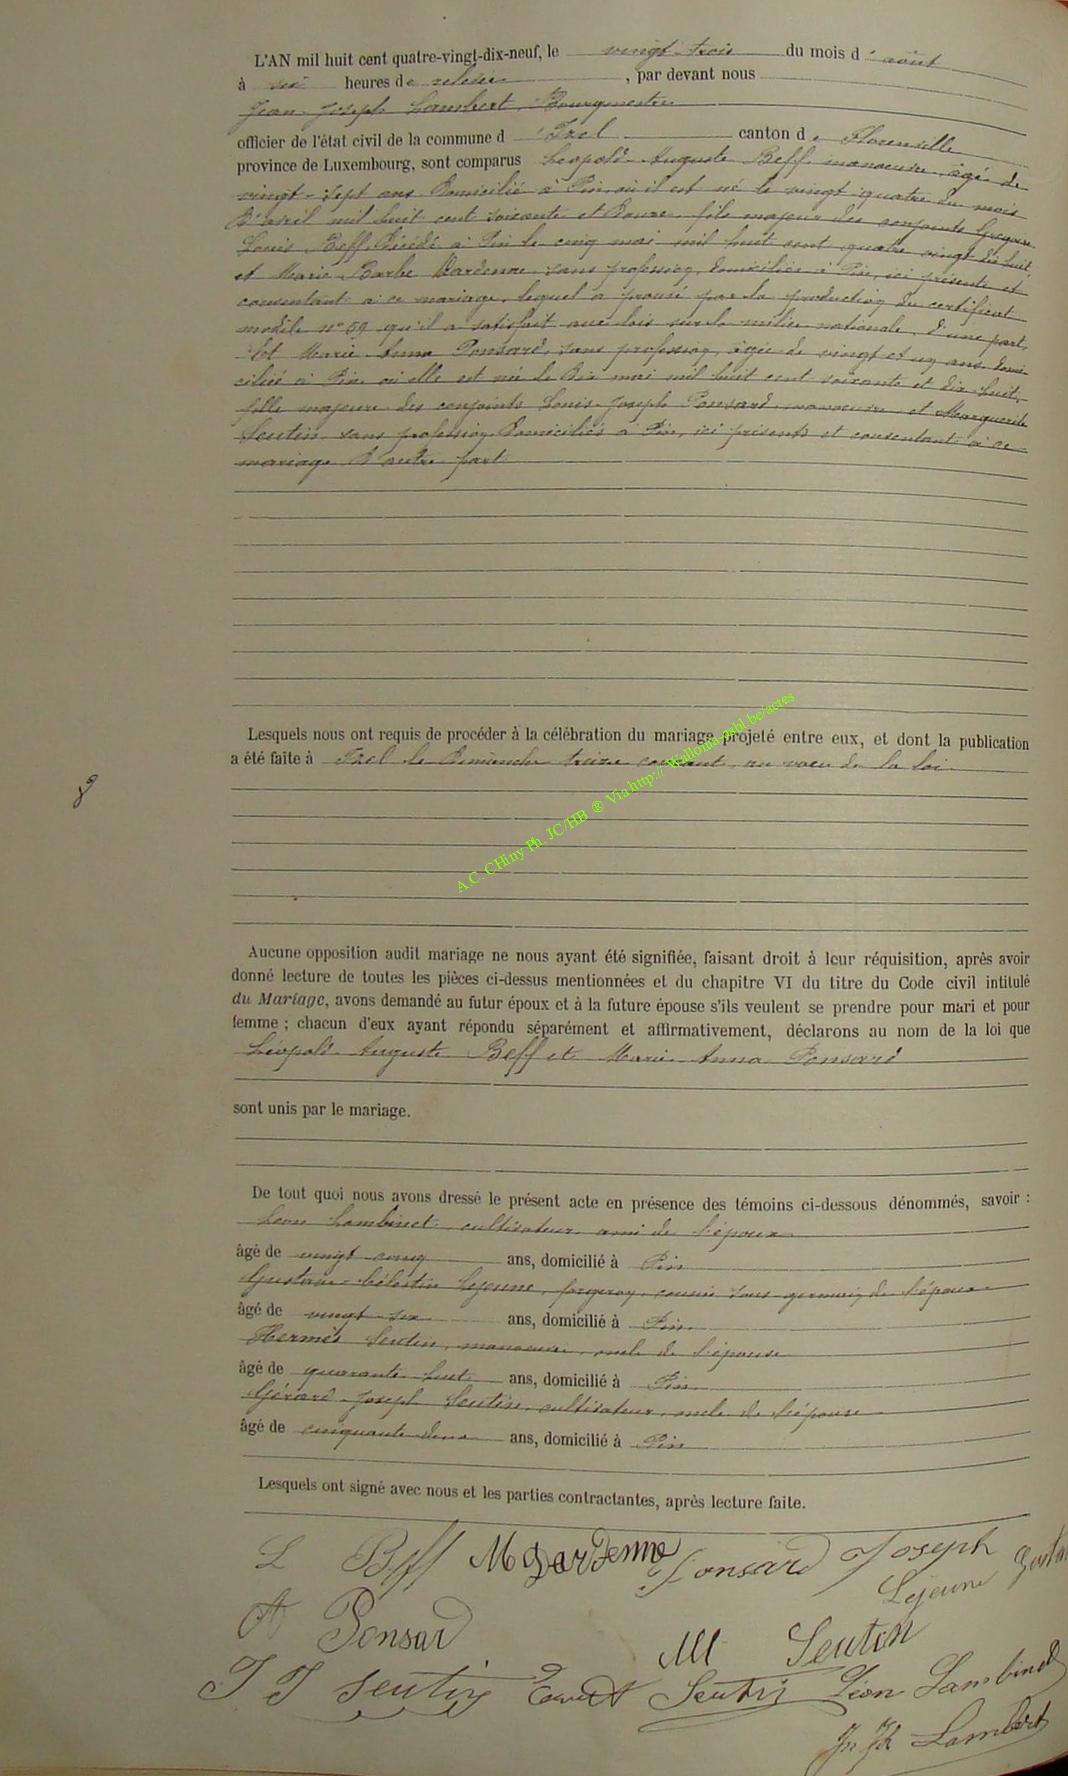 L'AN mil huit cent quatre-vingt-dix-neuf, le vingt trois du mois d'août
à six heures de relevée, par devant nous
Jean Joseph Lambert, Bourgmestre
officier de l'état civil de la commune d'Izel canton de Florenville
province de Luxembourg, sont comparus Léopold Auguste Beff, manoeuvre, âgé de
vingt-sept ans, domicilié à Pin, où il est né le vingt quatre du mois
d'avril mil huit cent soixante et douze, fils majeur des conjoints Grégoire
Louis Beff, décédé à Pin le cinq mai mil huit cent quatre vingt dix huit
et Marie Barbe Dardenne, sans profession, domiciliée à Pin, ici présente et
consentant à ce mariage, lequel a prouvé par la production du certificat
modèle n° 59 qu'il a satisfait aux lois sur la milice nationale, d'une part,
Et Marie Anna Ponsard, sans profession, âgée de vingt et un ans, domi
ciliée à Pin où elle est née le dix mai mil huit cent soixante et dix huit,
fille majeure des conjoints Louis Joseph Ponsard, manoeuvre, et Marguerite
Seutin, sans profession, domiciliés à Pin, ici présents et consentant à ce
mariage d'autre part.
Lesquels nous ont requis de procéder à la célébration du mariage projeté entre eux, et dont la publication
a été faite à Izel le dimanche treize courant, au voeu de la loi.
8
A.C. CHiny Ph. JC/HB ® Via http:// Wallonia-asbl.be/actes
Aucune opposition audit mariage ne nous ayant été signifiée, faisant droit à leur réquisition, après avoir
donné lecture de toutes les pièces ci-dessus mentionnées et du chapitre VI du titre du Code civil intitulé
du Mariage, avons demandé au futur époux et à la future épouse s'ils veulent se prendre pour mari et pour
femme ; chacun d'eux ayant répondu séparément et affirmativement, déclarons au nom de la loi que
Léopold Auguste Beff et Marie Anna Ponsard
sont unis par le mariage.
De tout quoi nous avons dressé le présent acte en présence des témoins ci-dessous dénommés, savoir :
Léon Lambinet, cultivateur, ami de l'époux
âgé de vingt cinq ans, domicilié à Pin
Gustave Célestin Lejeune, forgeron, cousin sous germain de l'époux
âgé de vingt six ans, domicilié à Pin
Hermès Seutin, manoeuvre, oncle de l'épouse
âgé de quarante huit ans, domicilié à Pin
Gérard Joseph Seutin, cultivateur, oncle de l'épouse
âgé de cinquante deux ans, domicilié à Pin
Lesquels ont signé avec nous et les parties contractantes, après lecture faite.
L Beff M Dardenne Ponsard Joseph
Lejeune Gusta
A Ponsard
M Seutin
Seutin Seutin Léon Lambinet
Jn Jh Lambert